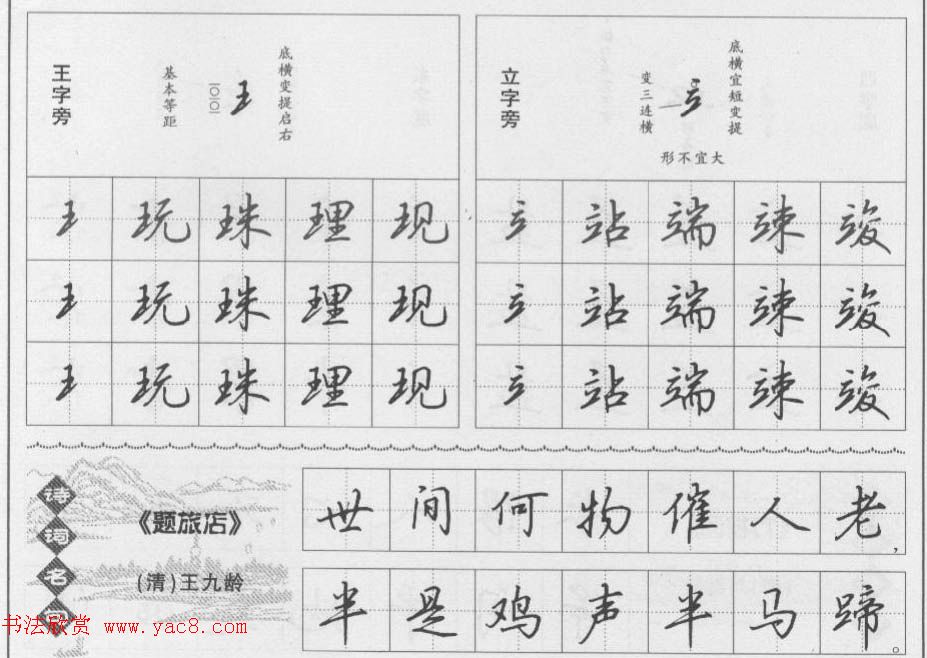 王字旁
基本等距
王
底横变提启右
立字旁
变三连横
底横宜短变提
形不宜大
王 玩 珠 理 现
王 玩 珠 理 现
王 玩 珠 理 现
立 站 端 竦 竣
立 站 端 竦 竣
立 站 端 竦 竣
诗词名
《题旅店》
(清)王九龄
世间何物催人老,
半是鸡声半马蹄。
书法欣赏 www.yac8.com